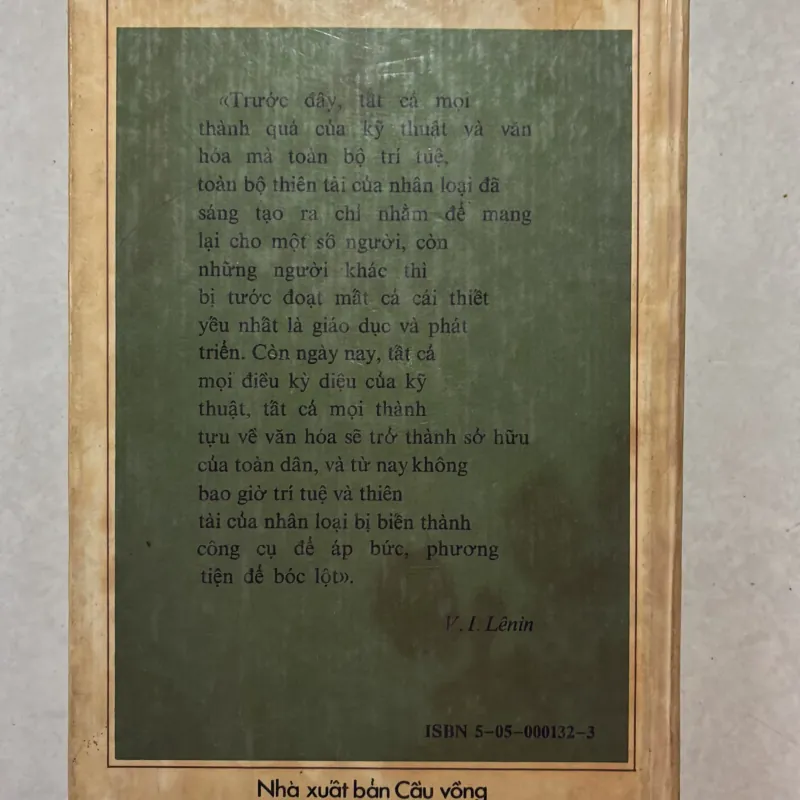 «Trước đây, tất cả mọi
thành quả của kỹ thuật và văn
hóa mà toàn bộ trí tuệ,
toàn bộ thiên tài của nhân loại đã
sáng tạo ra chỉ nhằm để mang
lại cho một số người, còn
những người khác thì
bị tước đoạt mất cả cái thiết
yếu nhất là giáo dục và phát
triển. Còn ngày nay, tất cả
mọi điều kỳ diệu của kỹ
thuật, tất cả mọi thành
tựu về văn hóa sẽ trở thành sở hữu
của toàn dân, và từ nay không
bao giờ trí tuệ và thiên
tài của nhân loại bị biến thành
công cụ để áp bức, phương
tiện để bóc lột».
V. I. Lênin
ISBN 5-05-000132-3
Nhà xuất bản Cầu vồng